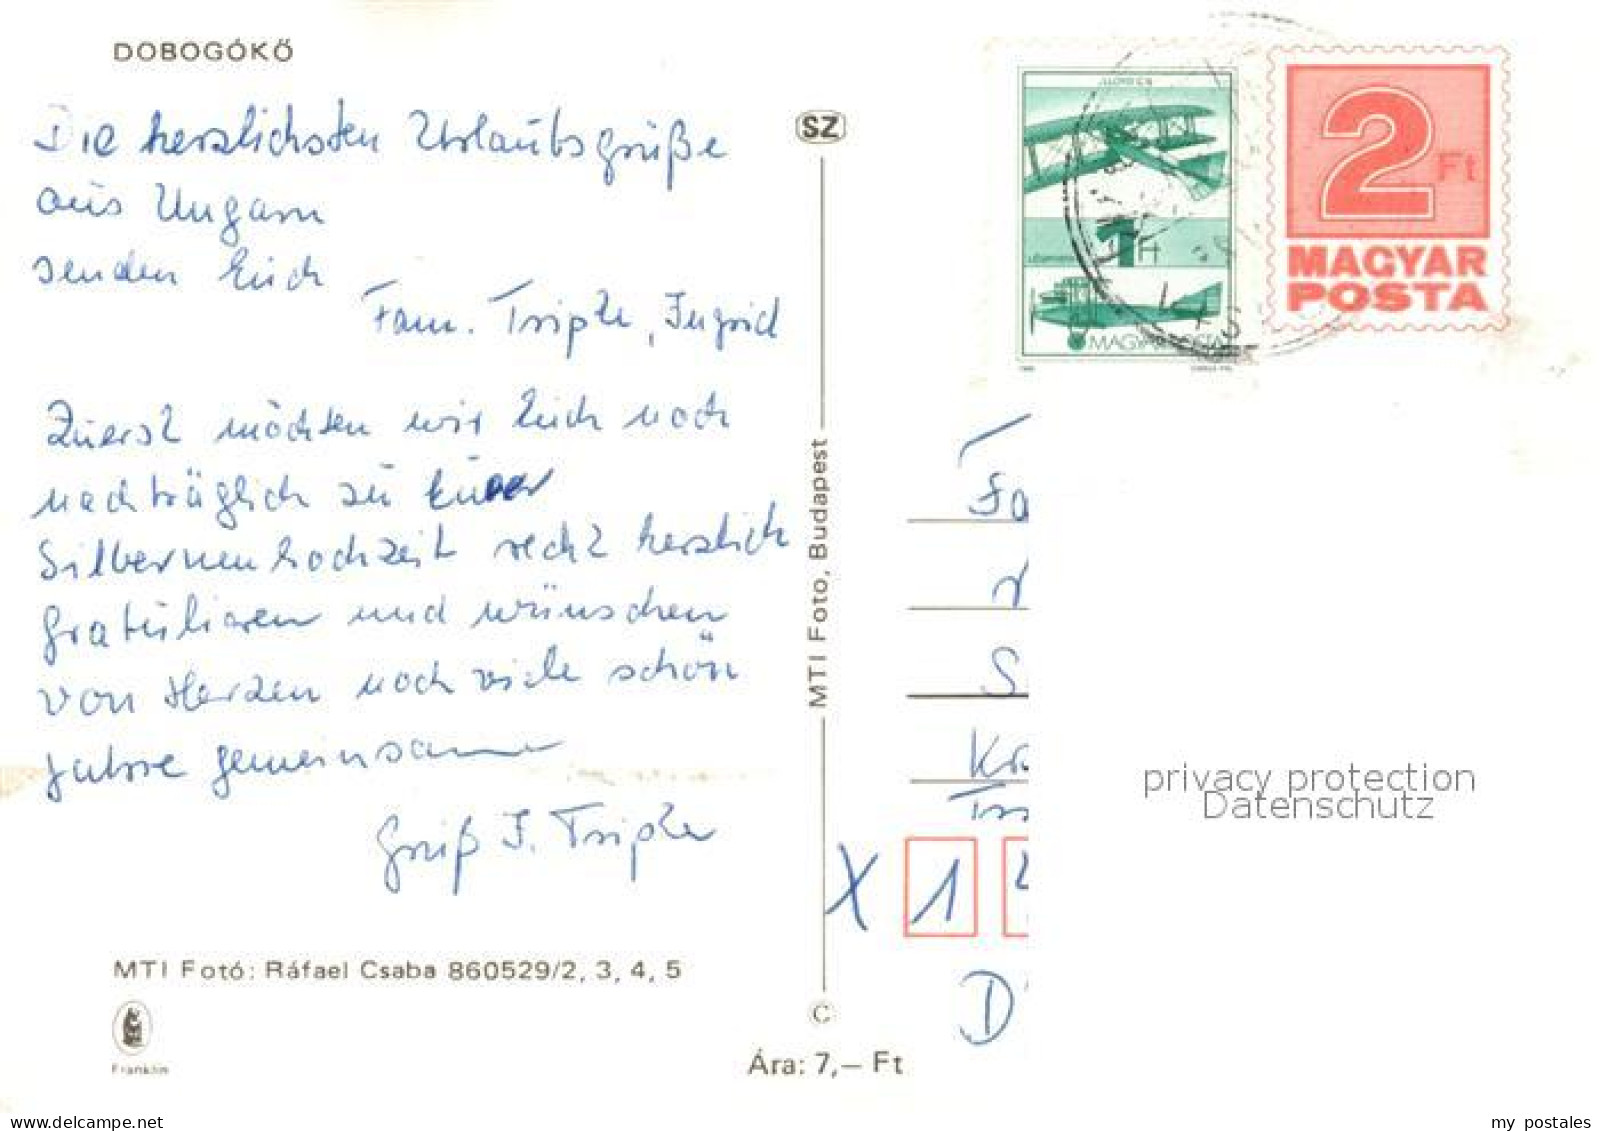 DOBOGÓKŐ
Die herzlichsten Urlaubsgrüße
aus Ungarn
senden Euch
Fam. Tripke, Ingrid
Zuerst möchten wir Euch noch
nachträglich zu Eurer
Silbernenhochzeit recht herzlich
gratulieren und wünschen
von Herzen noch viele schön
Jahre gemeinsam
Gruß I. Tripke
MTI Fotó: Ráfael Csaba 860529/2, 3, 4, 5
Franklin
SZ
MTI Foto, Budapest
C
Ára: 7,— Ft
1 Ft
MAGYAR POSTA
2 Ft
MAGYAR
POSTA
Fa
S
Kr
X 1
D
privacy protection
Datenschutz
www.delcampe.net
my_postales